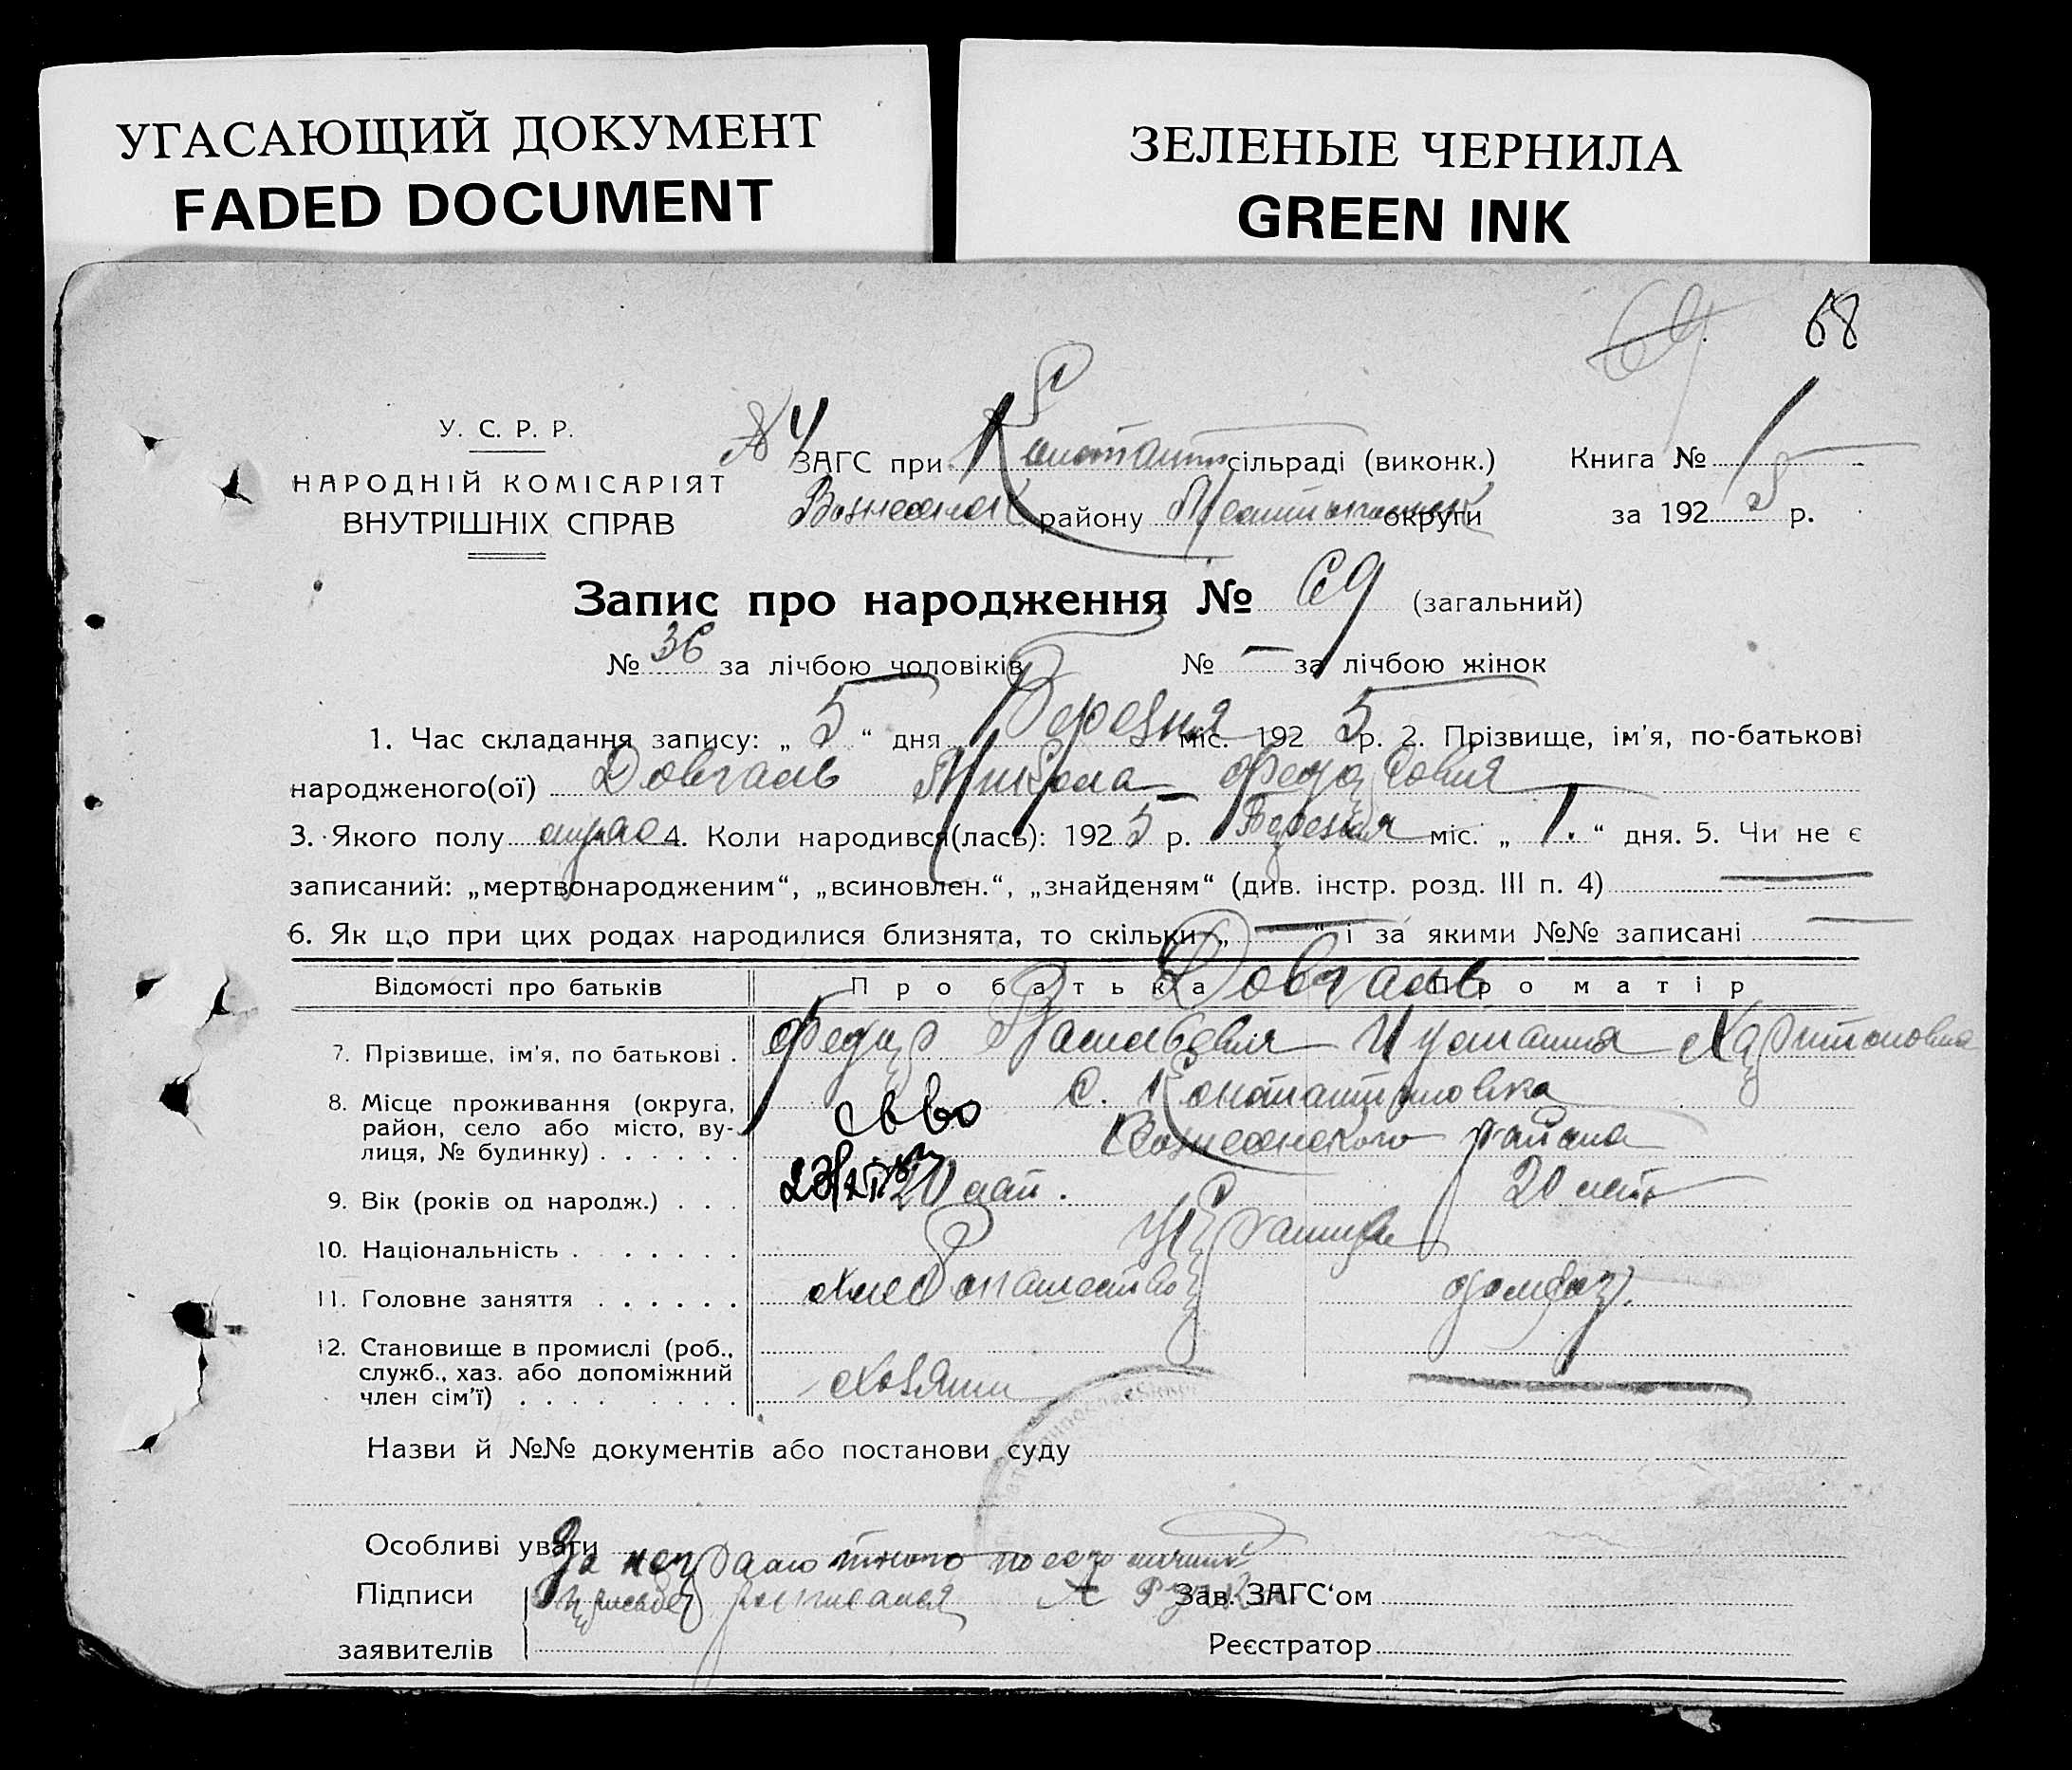 УГАСАЮЩИЙ ДОКУМЕНТ
FADED DOCUMENT
ЗЕЛЕНЫЕ ЧЕРНИЛА
GREEN INK
69 68
У. С. Р. Р.
НАРОДНІЙ КОМІСАРІЯТ
ВНУТРІШНІХ СПРАВ
№ 4
ЗАГС при Констант сільраді (виконк.)
Вознесенск району округи
Книга № 1
за 192 5 р.
Запис про народження № 69 (загальний)
№ 36 за лічбою чоловіків № — за лічбою жінок
1. Час складання запису: „ 5 “ дня Березня міс. 192 5 р. 2. Прізвище, ім'я, по-батькові
народженого(ої) Довгаль Микола Федорович
3. Якого полу 4. Коли народився(лась): 192 5 р. Березня міс. „ 1. “ дня. 5. Чи не є
записаний: „мертвонародженим“, „всиновлен.“, „знайденям“ (див. інстр. розд. III п. 4) —
6. Як що при цих родах народилися близнята, то скільки „ — “ і за якими №№ записані —
Відомості про батьків Про батька Про матір
Довгаль
7. Прізвище, ім'я, по батькові . Федор Харитоновна
8. Місце проживання (округа, район, село або місто, вулиця, № будинку) . . . . . . с. Константиновка
Вознесенского района
св во
9. Вік (років од народж.) . . . 20 лет. 20 лет
10. Національність . . . . . . Украинцы
11. Головне заняття . . . . . . Хлебопашество домхоз.
12. Становище в промислі (роб., служб., хаз. або допоміжний член сім'ї) . . . . . . . . Хозяин —
Назви й №№ документів або постанови суду
Особливі уваги
За неграмотного по его личной
Підписи заявителів просьбе расписался
Зав. ЗАГС'ом
Реєстратор